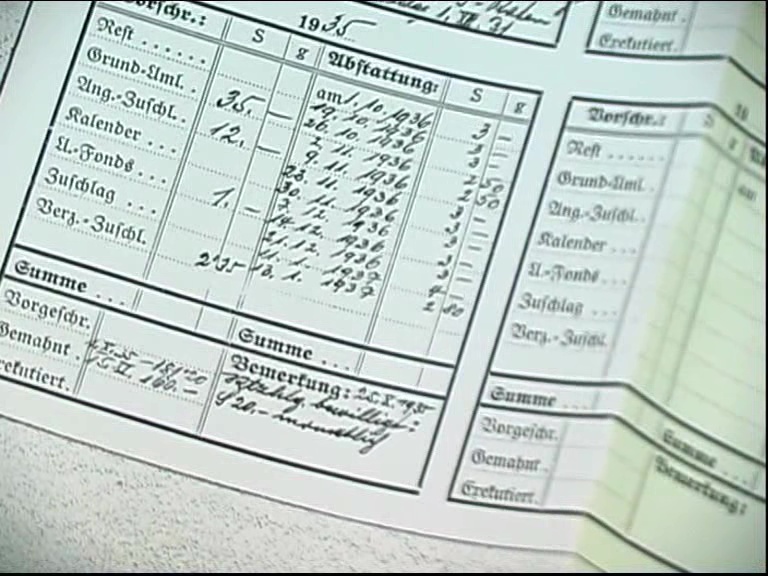 1. VI. 31
Vorschr.: S g
1935
Abstattung: S g
Rest . . . . . .
Grund-Uml. . .
Ang.-Zuschl. . 35. —
Kalender . . . 12. —
U.-Fonds . . .
Zuschlag . . . 1. —
Verz.-Zuschl. 2 35
am 1. 10. 1936 3 —
19. 10. 1936 3 —
26. 10. 1936 3 —
2. 11. 1936 2 50
9. 11. 1936 2 50
23. 11. 1936 3 —
30. 11. 1936 3 —
7. 12. 1936 3 —
14. 12. 1936 3 —
21. 12. 1936 3 —
11. 1. 1937 4 —
18. 1. 1937 2 80
Summe . . .
Summe . . .
Vorgeschr.
Gemahnt .
Exekutiert.
Bemerkung: 25. X. 1935
bewilligt:
S 20,- monatlich
Gemahnt .
Exekutiert.
19
Vorschr.: S g
Rest . . . . . .
Grund-Uml. .
Ang.-Zuschl. .
Kalender . . .
U.-Fonds . . .
Zuschlag . . .
Verz.-Zuschl.
am
Summe . . .
Summe . . .
Vorgeschr.
Gemahnt .
Exekutiert.
Bemerkung: